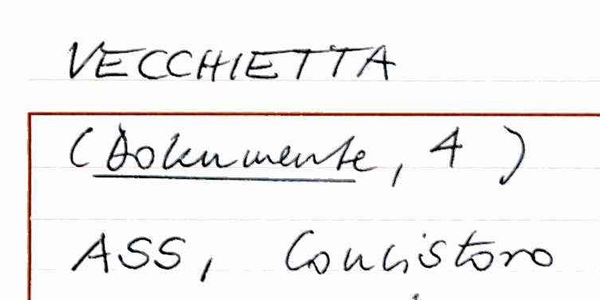 VECCHIETTA
(Dokumente, 4)
ASS, Concistoro